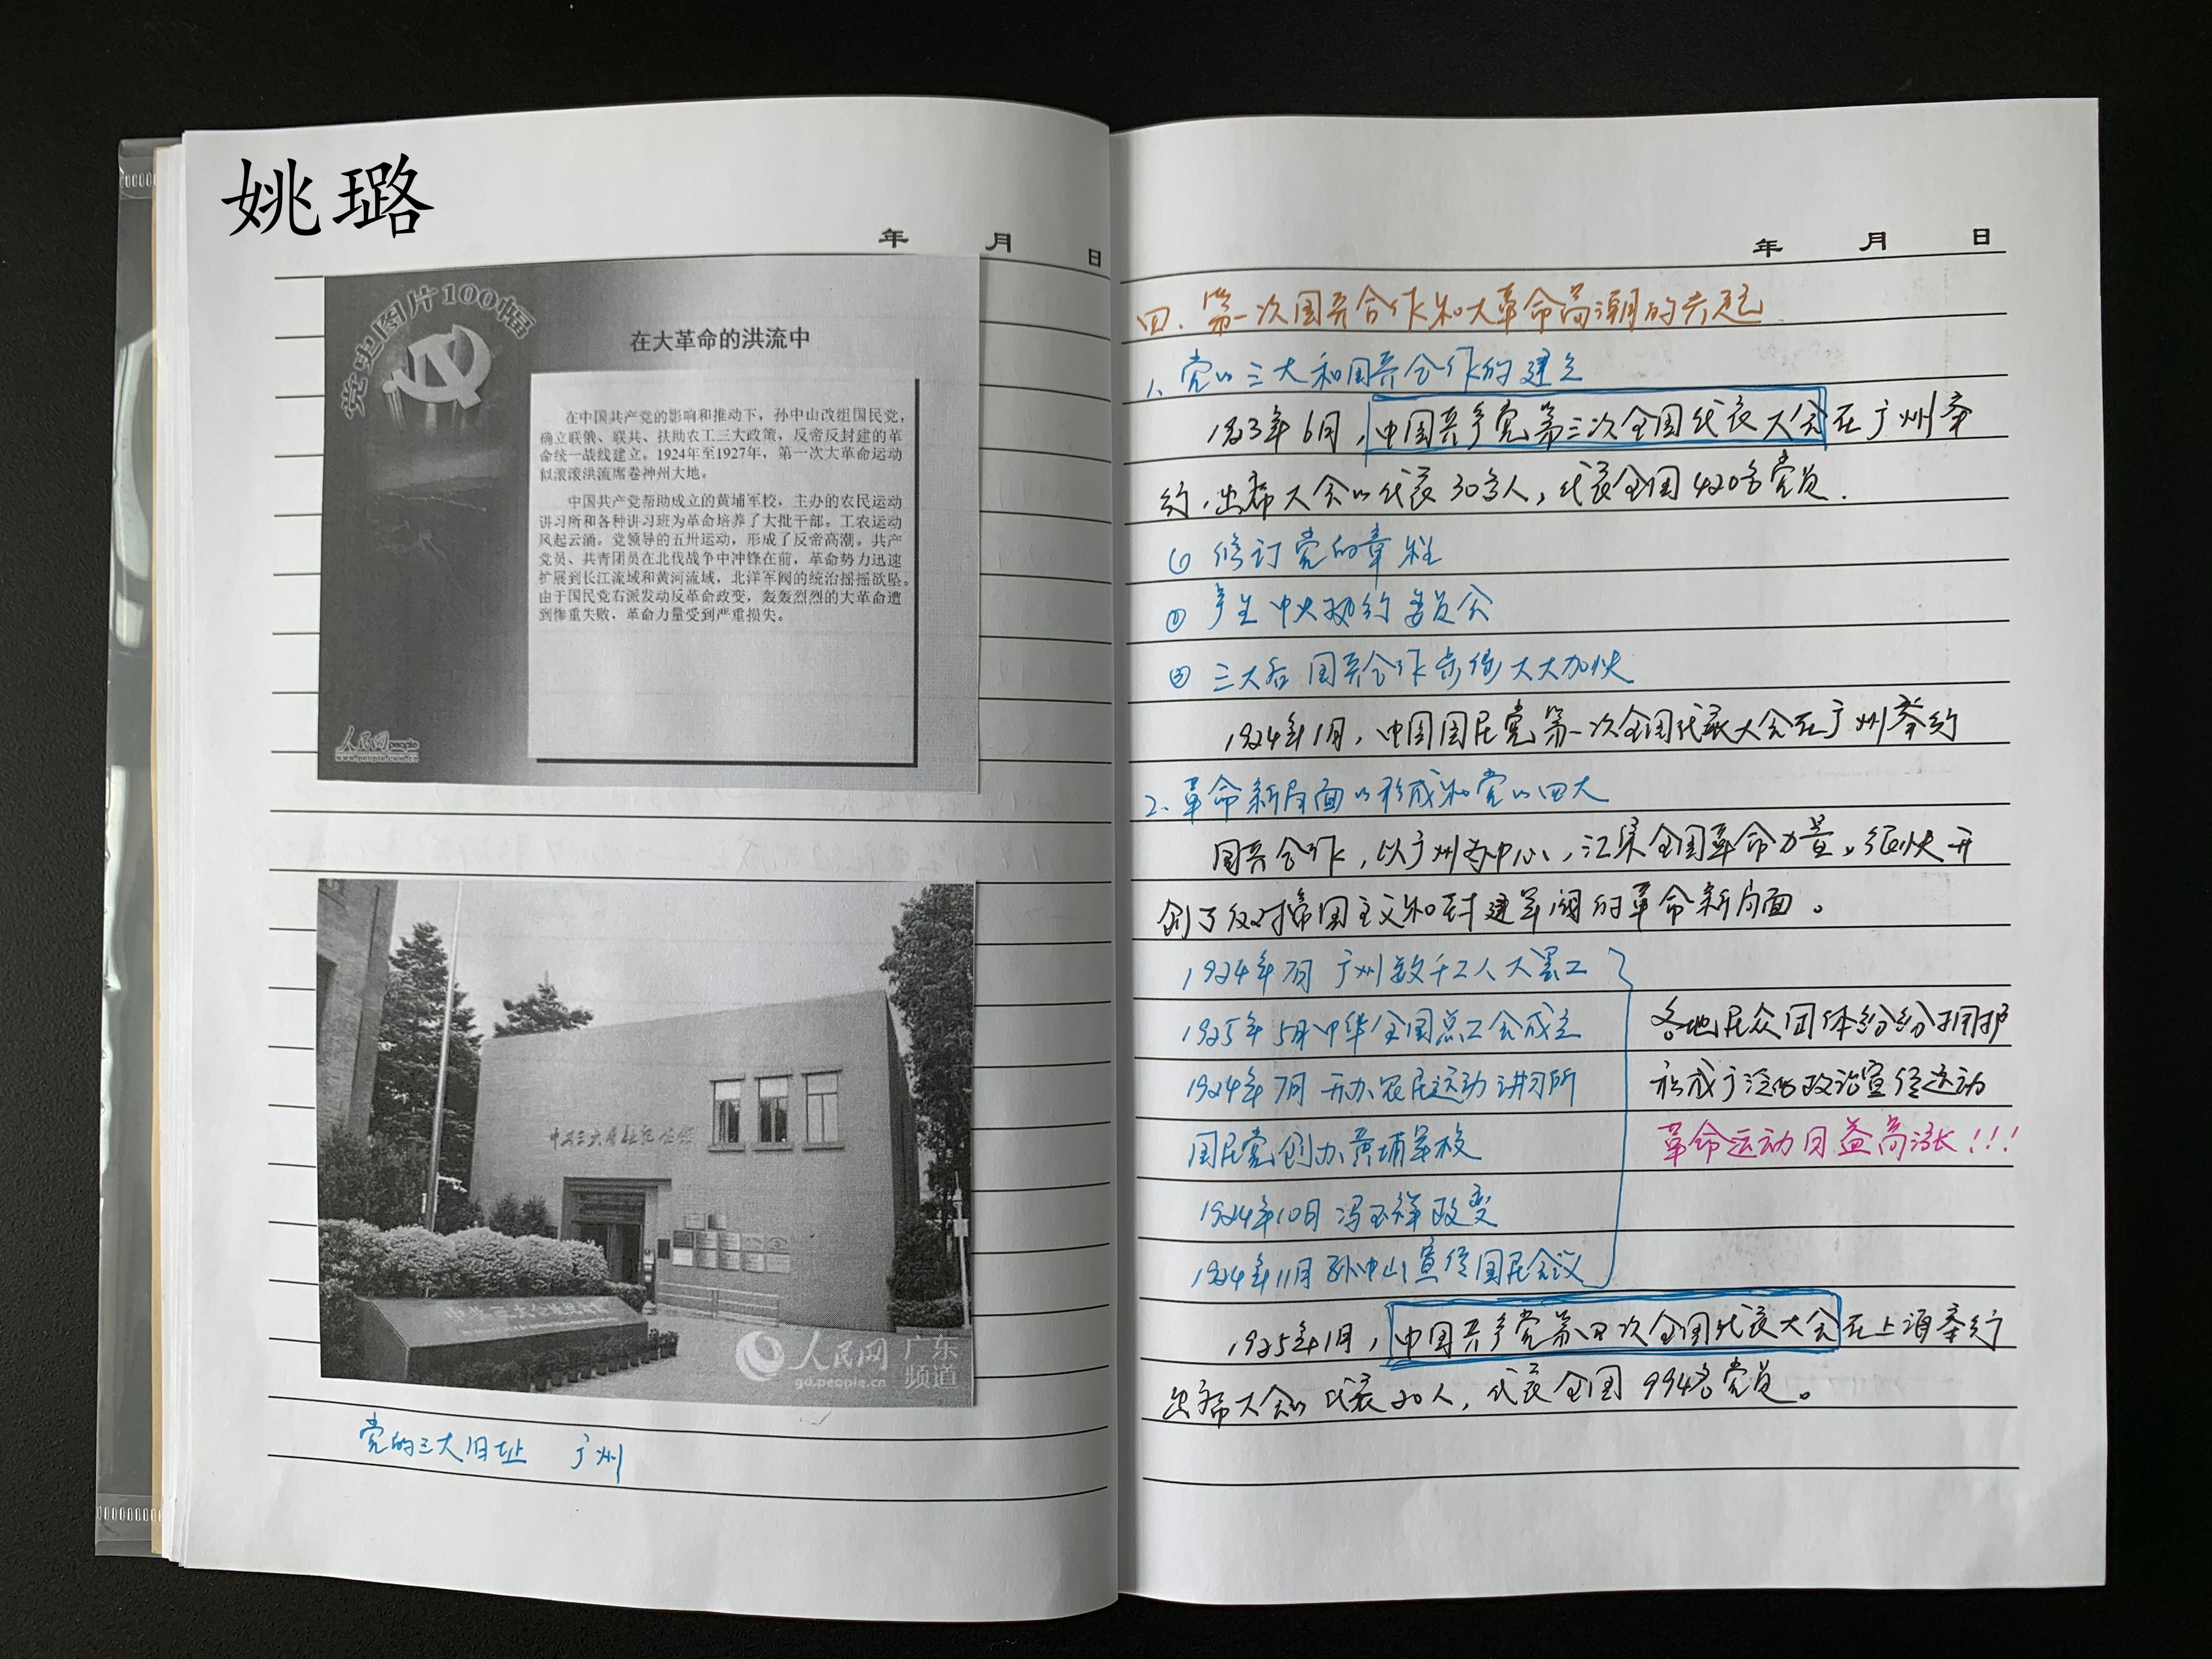 姚璐
年 月 日
党史图片100幅
在大革命的洪流中
在中国共产党的影响和推动下，孙中山改组国民党，
确立联俄、联共、扶助农工三大政策，反帝反封建的革
命统一战线建立。1924年至1927年，第一次大革命运动
似滚滚洪流席卷神州大地。
中国共产党帮助成立的黄埔军校，主办的农民运动
讲习所和各种讲习班为革命培养了大批干部。工农运动
风起云涌。党领导的五卅运动，形成了反帝高潮。共产
党员、共青团员在北伐战争中冲锋在前，革命势力迅速
扩展到长江流域和黄河流域，北洋军阀的统治摇摇欲坠。
由于国民党右派发动反革命政变，轰轰烈烈的大革命遭
到惨重失败，革命力量受到严重损失。
人民网 people
www.people.com.cn
人民网 广东
gd.people.cn 频道
党的三大旧址 广州
年 月 日
四、第一次国共合作和大革命高潮的兴起
1、党的三大和国共合作的建立
1923年6月，中国共产党第三次全国代表大会在广州举
行，出席大会的代表30多人，代表全国420名党员.
① 修订党的章程
② 产生中央执行委员会
③ 三大后国共合作步伐大大加快
1924年1月，中国国民党第一次全国代表大会在广州举行
2、革命新局面的形成和党的四大
国共合作，以广州为中心，汇集全国革命力量，很快开
创了反对帝国主义和封建军阀的革命新局面。
1924年7月 广州数千工人大罢工
1925年5月 中华全国总工会成立
1924年7月 开办农民运动讲习所
国民党创办黄埔军校
1924年10月 冯玉祥政变
1924年11月 孙中山宣传国民会议
各地民众团体纷纷拥护
形成广泛的政治宣传运动
革命运动日益高涨!!!
1925年1月，中国共产党第四次全国代表大会在上海举行
出席大会的代表20人，代表全国994名党员。